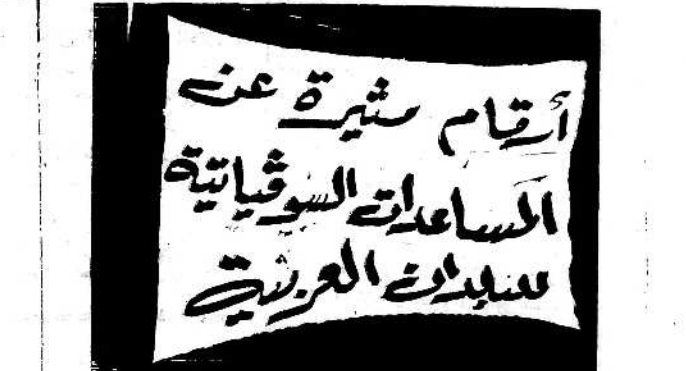 أرقام مثيرة عن
المساعدات السوڤياتية
للبلدان العربية